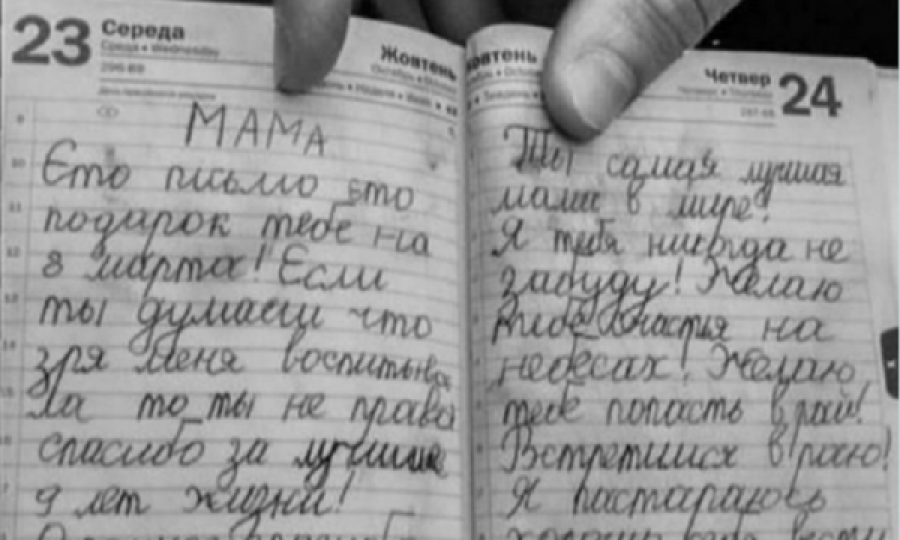 23 Середа
Среда • Wednesday
296-69
Жовтень
МАМА
Єто письмо ето
подарок тебе на
8 марта! Єсли
ты думаеш что
зря меня воспитыва
ла то ты не права
спасибо за лучшие
9 лет жизни!
овтень
Четвер 24
Четверг • Thursday
297-68
Ты самая лучшая
мама в мире!
Я тебя никогда не
забуду! Желаю
тебе счастья на
небесах! Желаю
тебе попасть в рай!
Встретимся в раю!
Я пастараюсь
хорошо себя вести
9
10
11
12
13
14